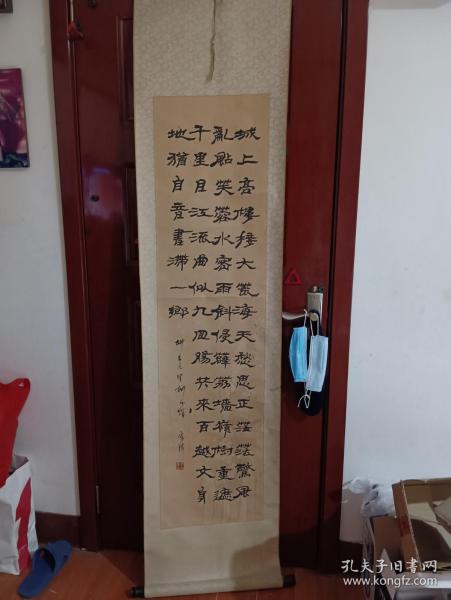 城上高樓接大荒海天愁思正茫茫驚風
亂點芙蓉水密雨斜侵薜荔墻嶺樹重遮
千里目江流曲似九回腸共來百越文身
地猶自音書滯一鄉
孔夫子旧书网
www.kongfz.com